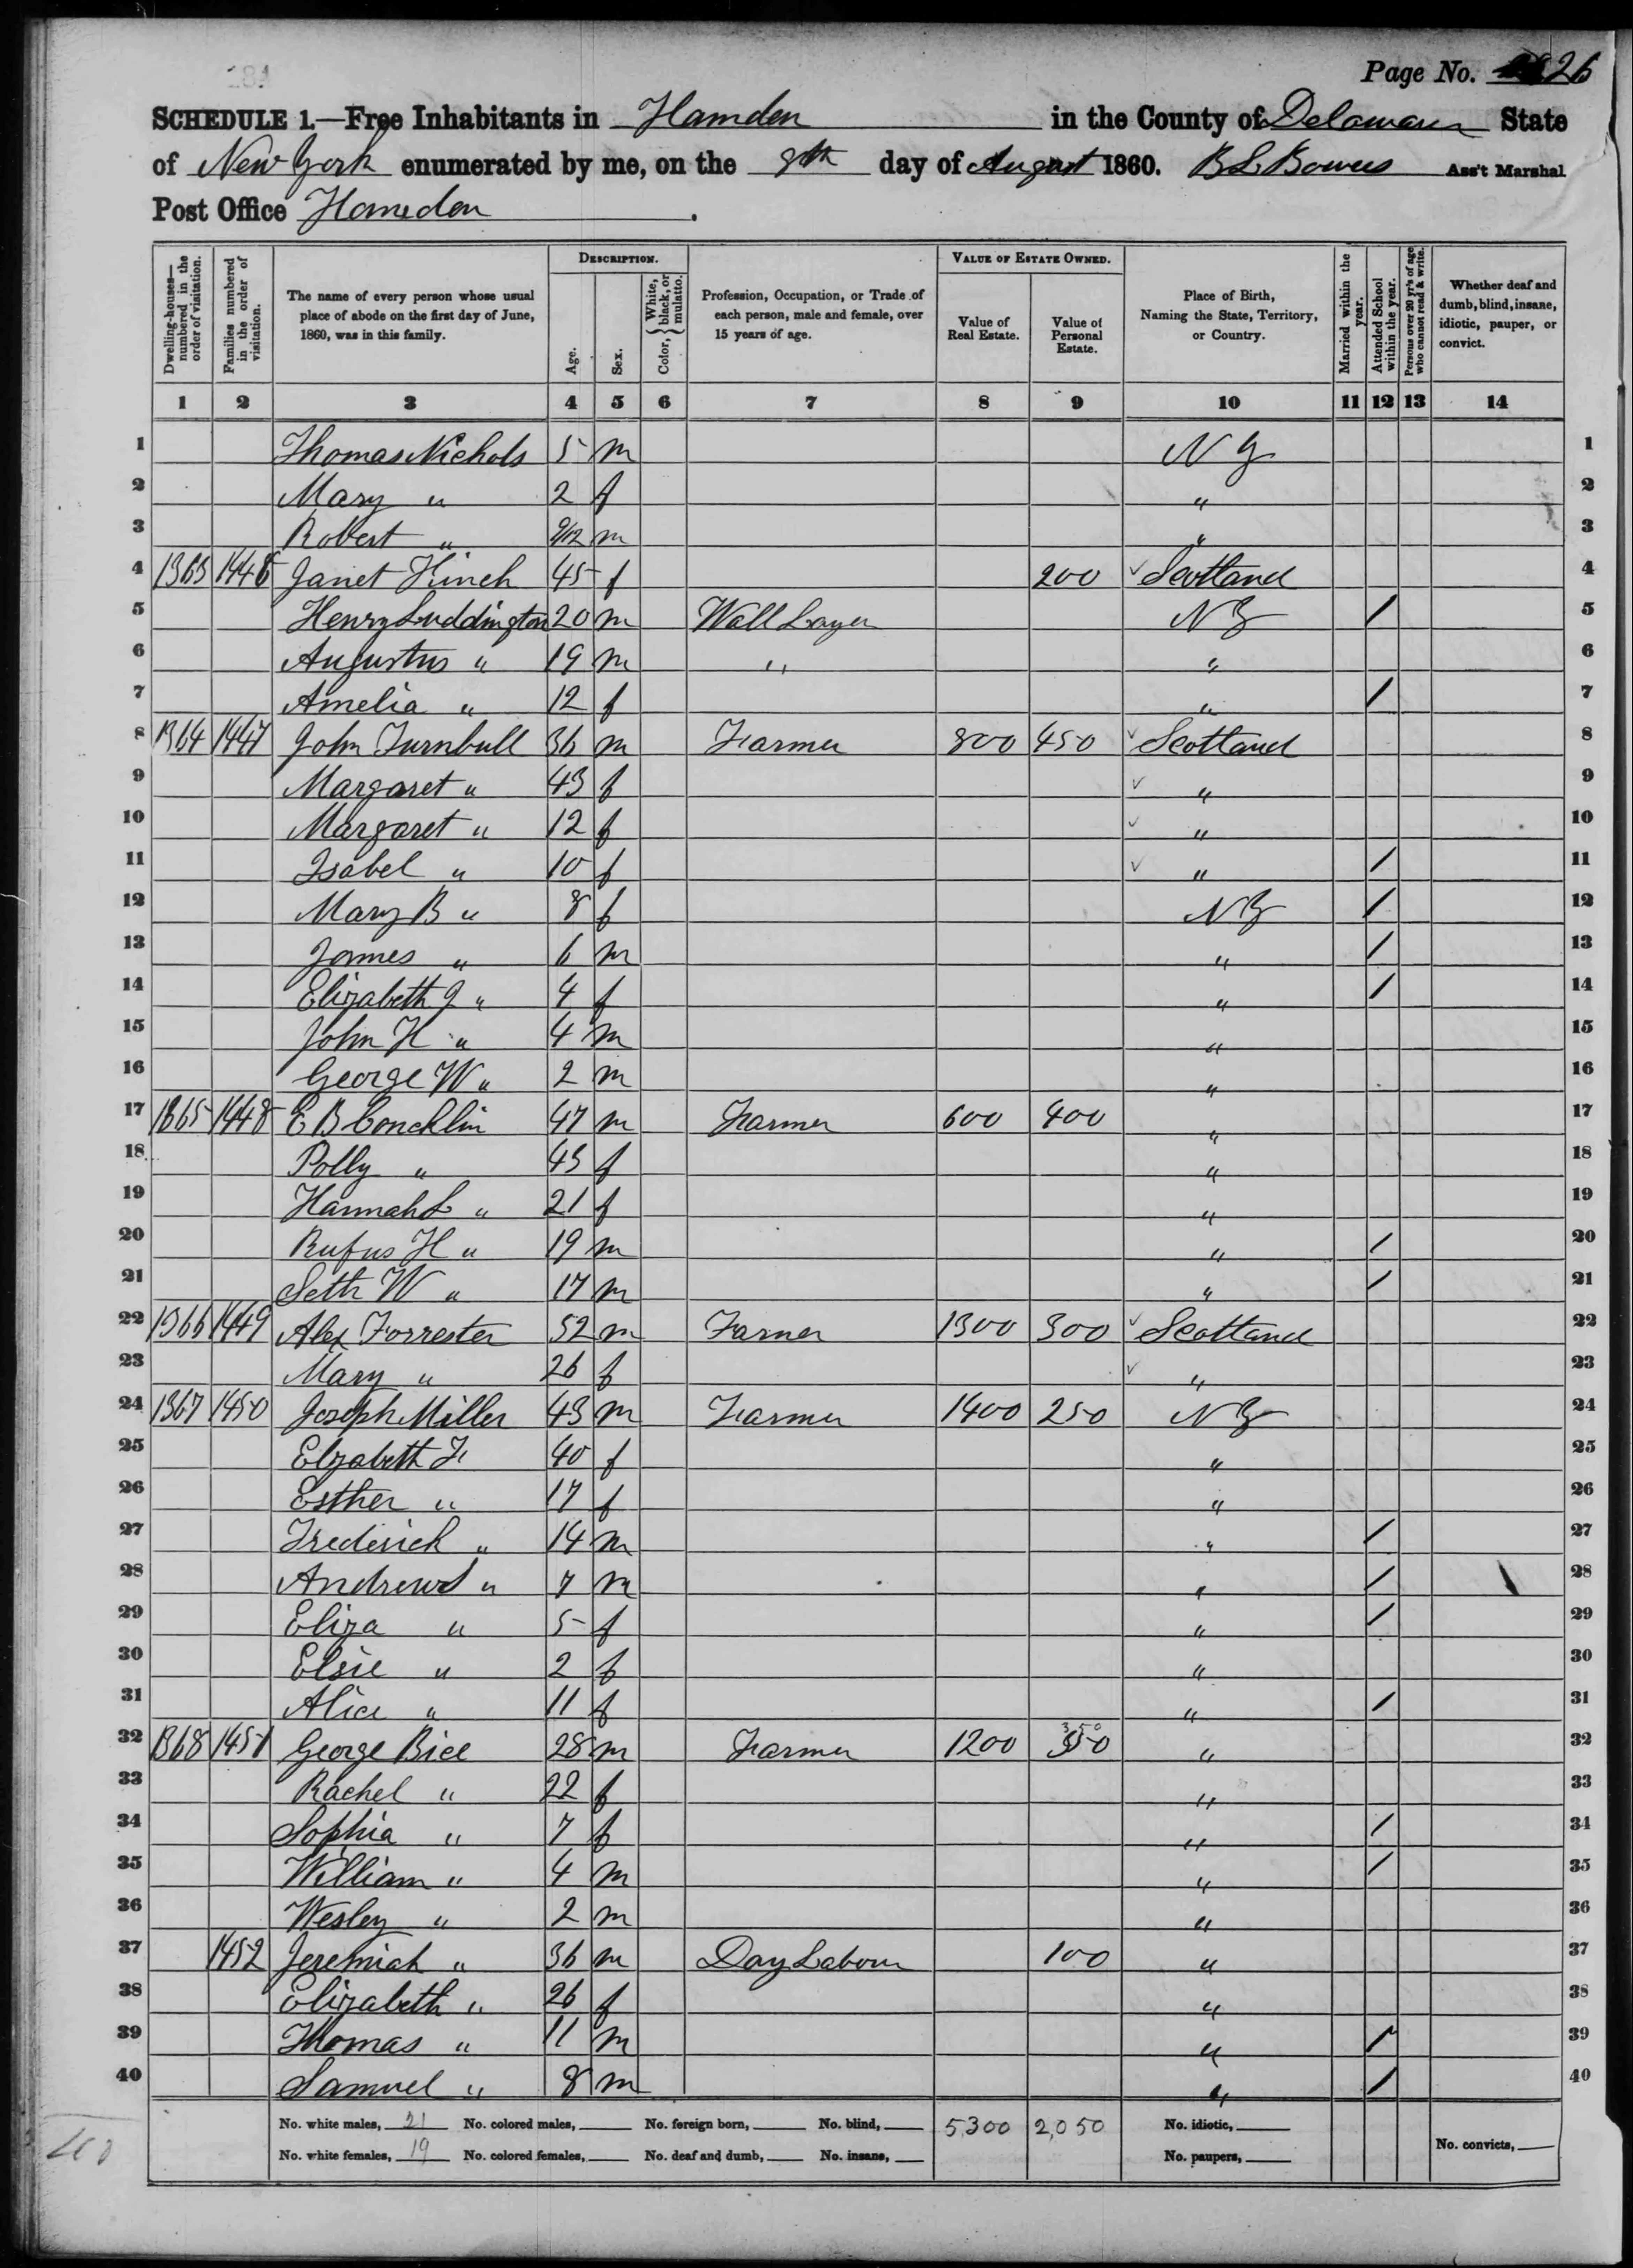 Page No. 26
SCHEDULE 1.—Free Inhabitants in Hamden in the County of Delaware State
of New York enumerated by me, on the 8th day of August 1860. B L Bowers Ass't Marshal
Post Office Hamden.
Dwelling-houses—numbered in the order of visitation.
Families numbered in the order of visitation.
The name of every person whose usual place of abode on the first day of June, 1860, was in this family.
DESCRIPTION.
Age.
Sex.
Color, { White, black, or mulatto.
Profession, Occupation, or Trade of each person, male and female, over 15 years of age.
VALUE OF ESTATE OWNED.
Value of Real Estate.
Value of Personal Estate.
Place of Birth, Naming the State, Territory, or Country.
Married within the year.
Attended School within the year.
Persons over 20 yr's of age who cannot read & write.
Whether deaf and dumb, blind, insane, idiotic, pauper, or convict.
1 2 3 4 5 6 7 8 9 10 11 12 13 14
1 Thomas Nichols 5 m N Y 1
2 Mary " 2 f " 2
3 Robert " 9/12 m " 3
4 1363 1446 Janet Hinch 45 f 200 ✓ Scotland 4
5 Henry Luddington 20 m Wall Layer N Y / 5
6 Augustus " 19 m " " 6
7 Amelia " 12 f " / 7
8 1364 1447 John Turnbull 36 m Farmer 800 450 ✓ Scotland 8
9 Margaret " 43 f ✓ " 9
10 Margaret " 12 f ✓ " 10
11 Isabel " 10 f ✓ " / 11
12 Mary B " 8 f N Y / 12
13 James " 6 m " / 13
14 Elizabeth J " 4 f " / 14
15 John H " 4 m " 15
16 George W " 2 m " 16
17 1365 1448 E B Concklin 47 m Farmer 600 400 " 17
18 Polly " 43 f " 18
19 Hannah L " 21 f " 19
20 Rufus H " 19 m " / 20
21 Seth W " 17 m " / 21
22 1366 1449 Alex Forrester 52 m Farmer 1300 300 ✓ Scotland 22
23 Mary " 26 f ✓ " 23
24 1367 1450 Joseph Miller 43 m Farmer 1400 250 N Y 24
25 Elizabeth F 40 f " 25
26 Esther " 17 f " 26
27 Frederick " 14 m " / 27
28 Andrew S " 7 m " / 28
29 Eliza " 5 f " / 29
30 Elsie " 2 f " 30
31 Alice " 11 f " / 31
32 1368 1451 George Bice 28 m Farmer 1200 350 " 32
33 Rachel " 22 f " 33
34 Sophia " 7 f " / 34
35 William " 4 m " / 35
36 Wesley " 2 m " 36
37 1452 Jeremiah " 36 m Day Labour 100 " 37
38 Elizabeth " 26 f " 38
39 Thomas " 11 m " / 39
40 Samuel " 8 m " / 40
No. white males, 21 No. colored males, No. foreign born, No. blind, 5300 2,050 No. idiotic,
No. white females, 19 No. colored females, No. deaf and dumb, No. insane, No. paupers, No. convicts,